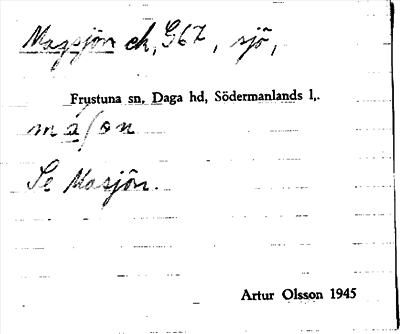 Magsjön ek, G67, sjö,
Frustuna sn, Daga hd, Södermanlands l,.
ma/on
Se Masjön.
Artur Olsson 1945